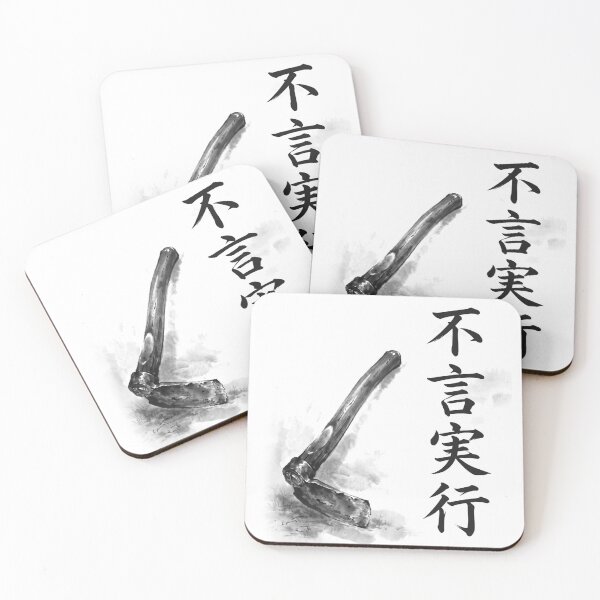 不言実
不言
不言実行
不言実行